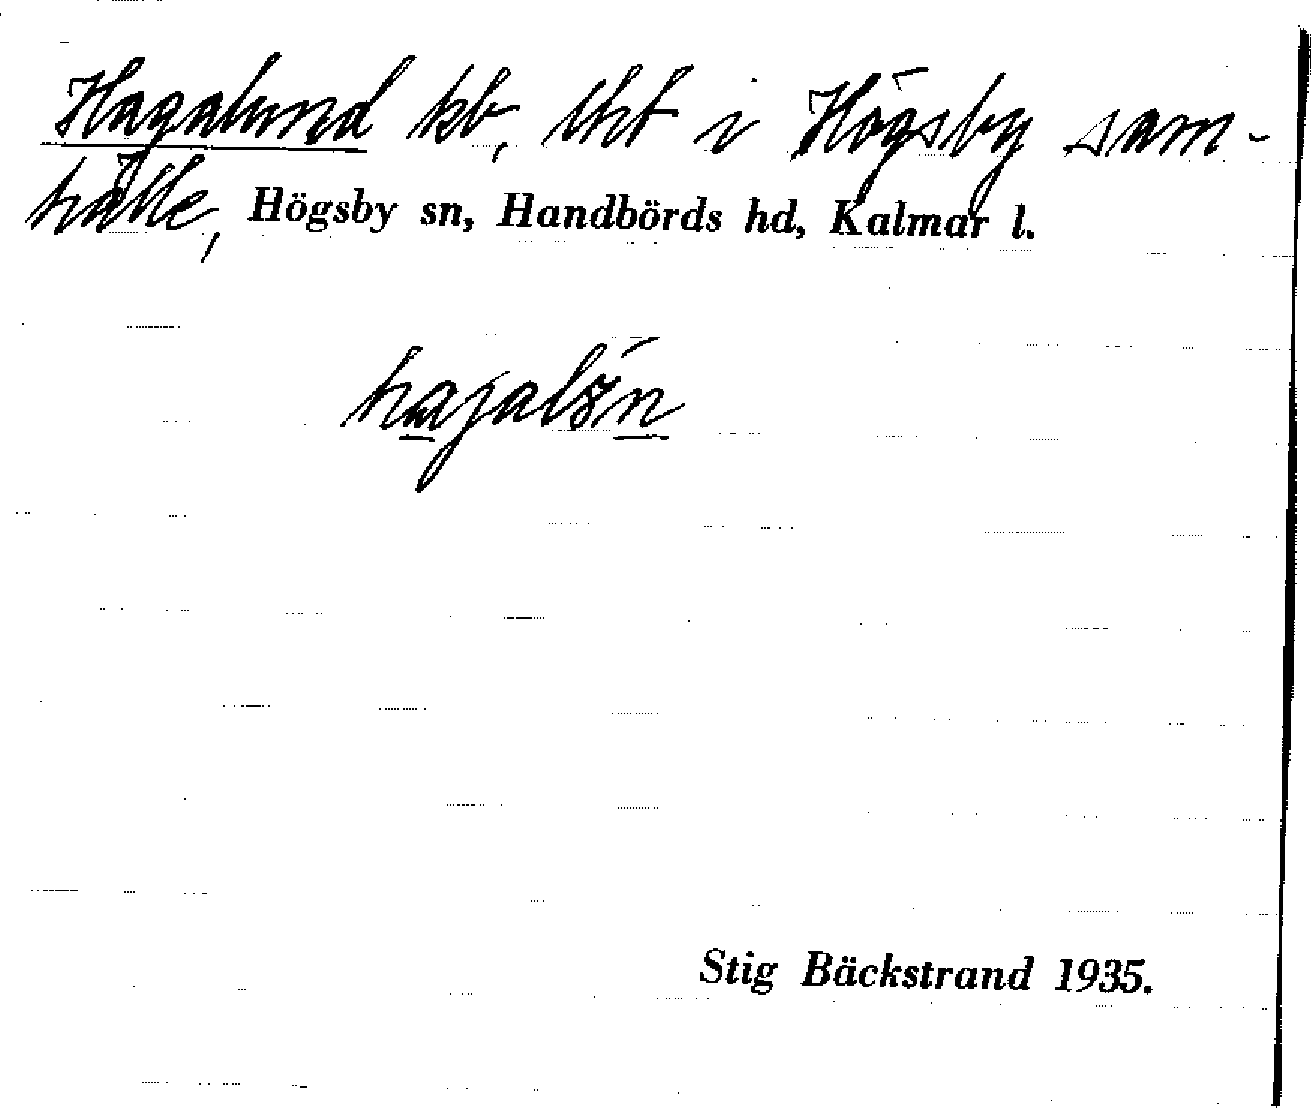 Hagalund kb, tht i Högsby sam-
hälle, Högsby sn, Handbörds hd, Kalmar l.
Stig Bäckstrand 1935.